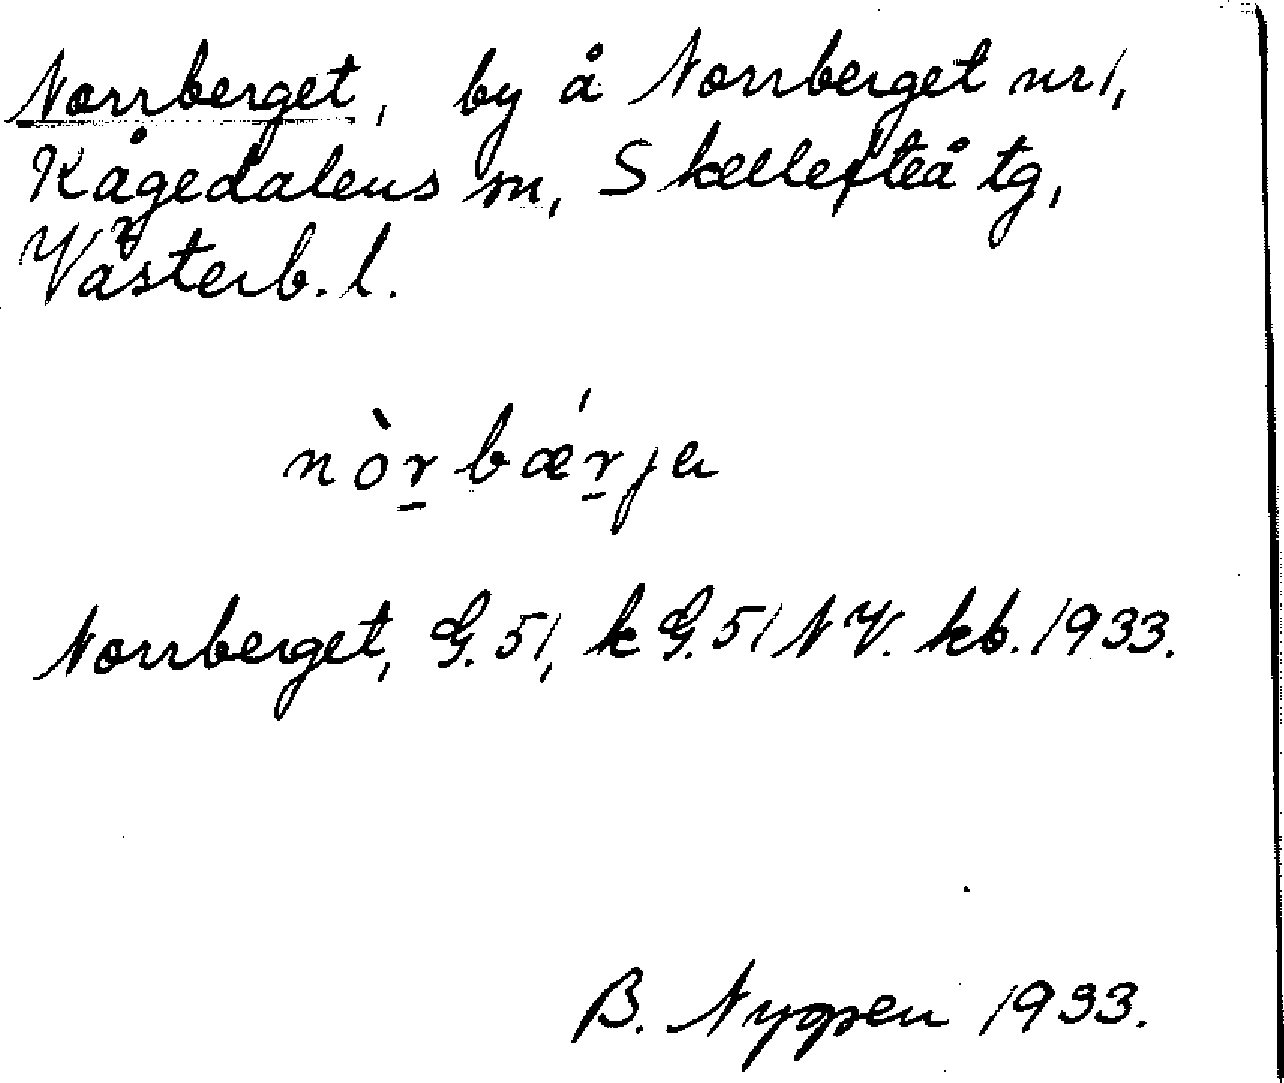 Norrberget, by å Norrberget nr 1,
Kågedalens sn, Skellefteå tg,
Västerb. l.
nòr̠bǽr̠ja
Norrberget, G. 51, k G. 51 NV. kb. 1933.
B. Nygren 1933.